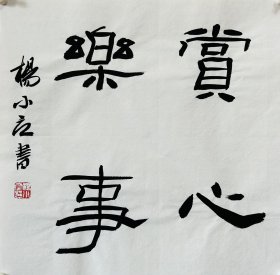 賞心
樂事
楊小立書